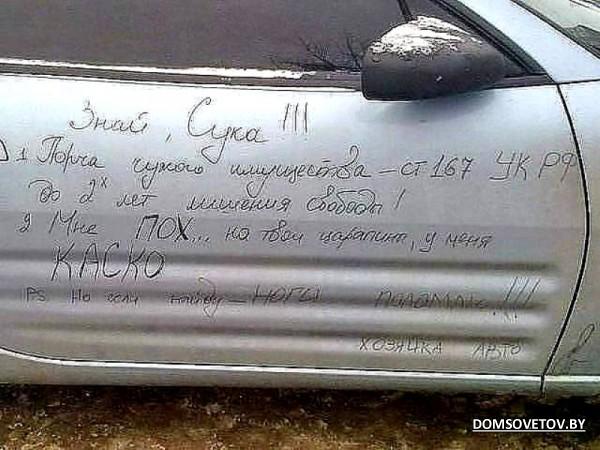 Знай, Сука!!!
1 Порча чужого имущества – ст 167 УК РФ
до 2х лет лишения свободы!
2 Мне ПОХ... на твои царапины, у меня
КАСКО
PS Но если найду – НОГИ поломаю!!!
ХОЗЯЙКА АВТО
DOMSOVETOV.BY